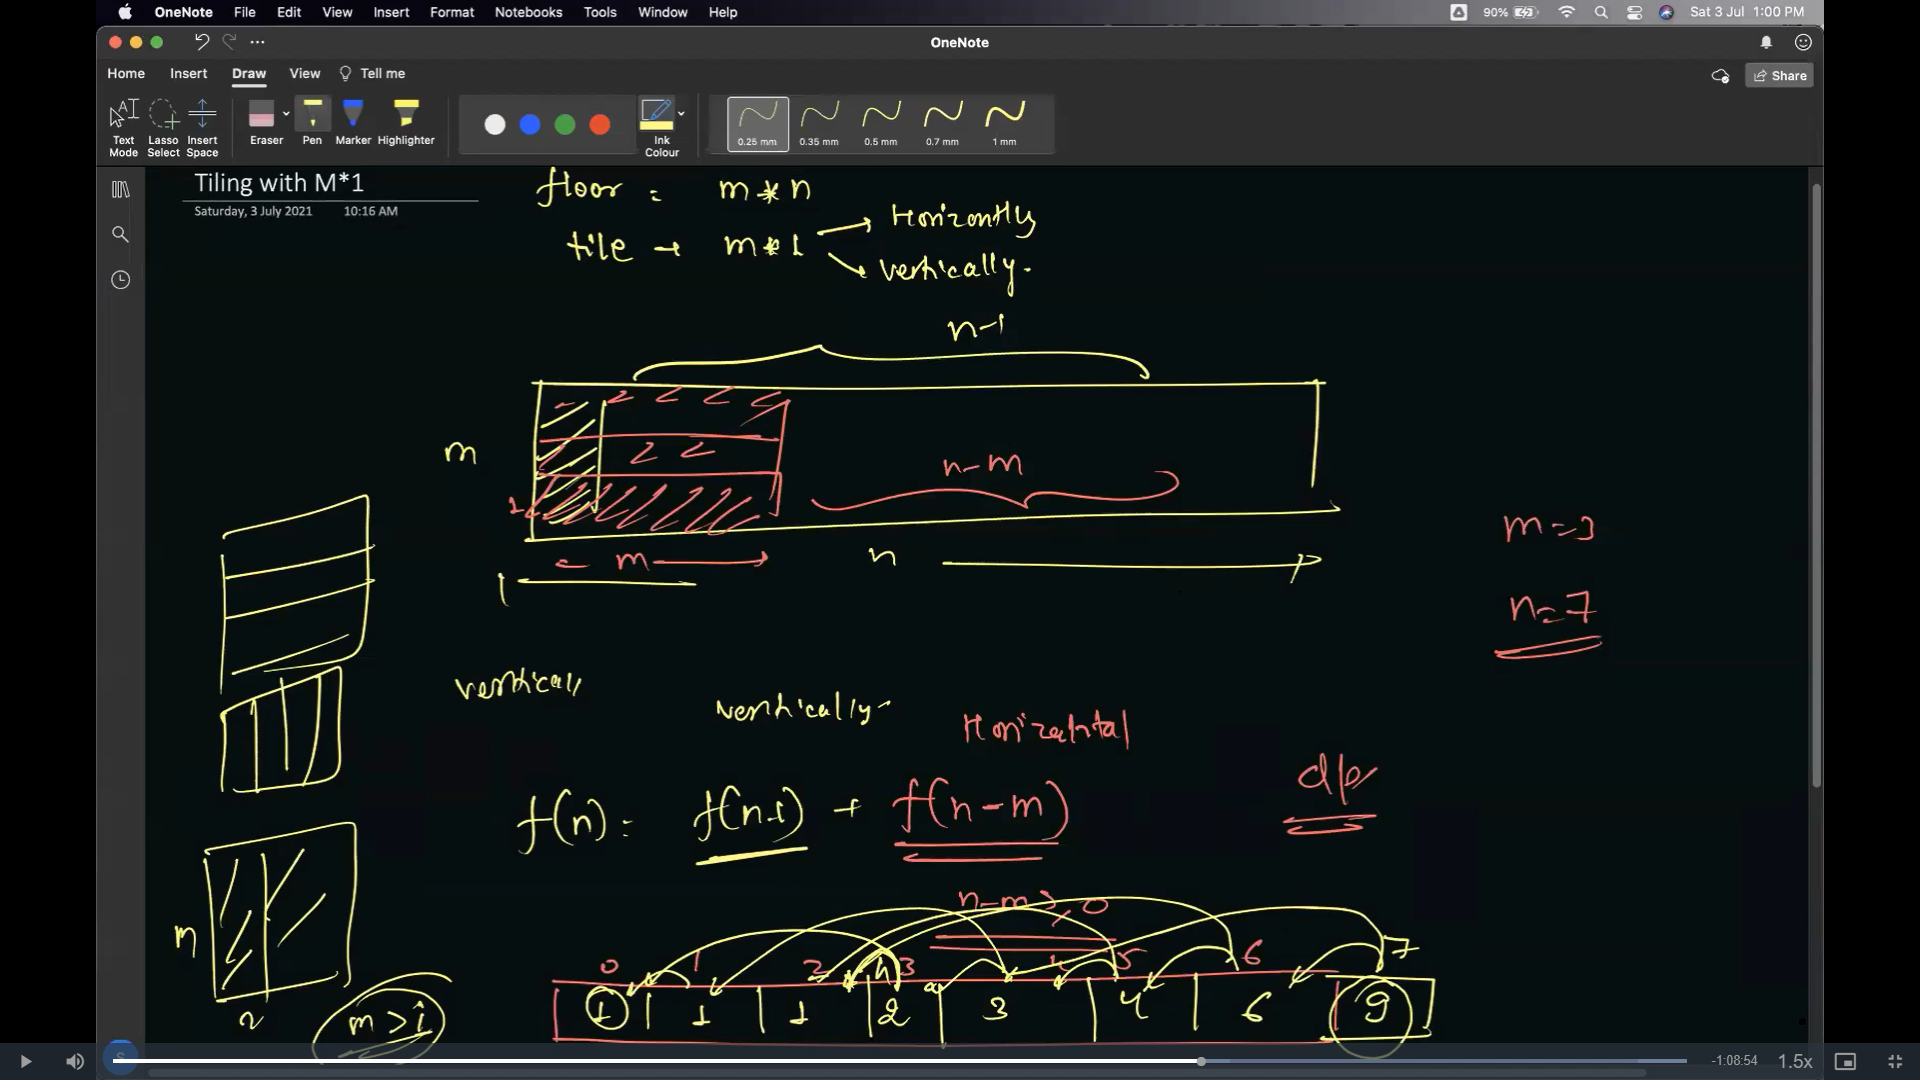 OneNote File Edit View Insert Format Notebooks Tools Window Help 90% Sat 3 Jul 1:00 PM
OneNote
Home Insert Draw View Tell me Share
Text Mode Lasso Select Insert Space Eraser Pen Marker Highlighter Ink Colour 0.25 mm 0.35 mm 0.5 mm 0.7 mm 1 mm
Tiling with M*1
Saturday, 3 July 2021 10:16 AM
floor : m * n
Horizontly
tile → m * 1
vertically.
n-1
m
n-m
1
m=3
m n
n=7
verticall
vertically
Horizontal
dp
f(n): f(n-1) + f(n-m)
n-m >, 0
m
0 1 2 3 4 5 6 7
1 1 1 2 3 4 6 9
2
m > i
-1:08:54 1.5x